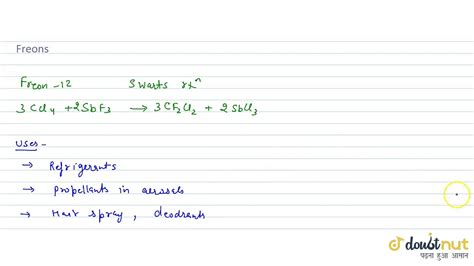 Freons
Freon-12 Swarts rxⁿ
3 CCl₄ + 2SbF₃ → 3CF₂Cl₂ + 2SbCl₃
Uses -
→ Refrigerants
→ Propellants in aerosols
→ Hair spray, deodrants
doubtnut
पढ़ना हुआ आसान